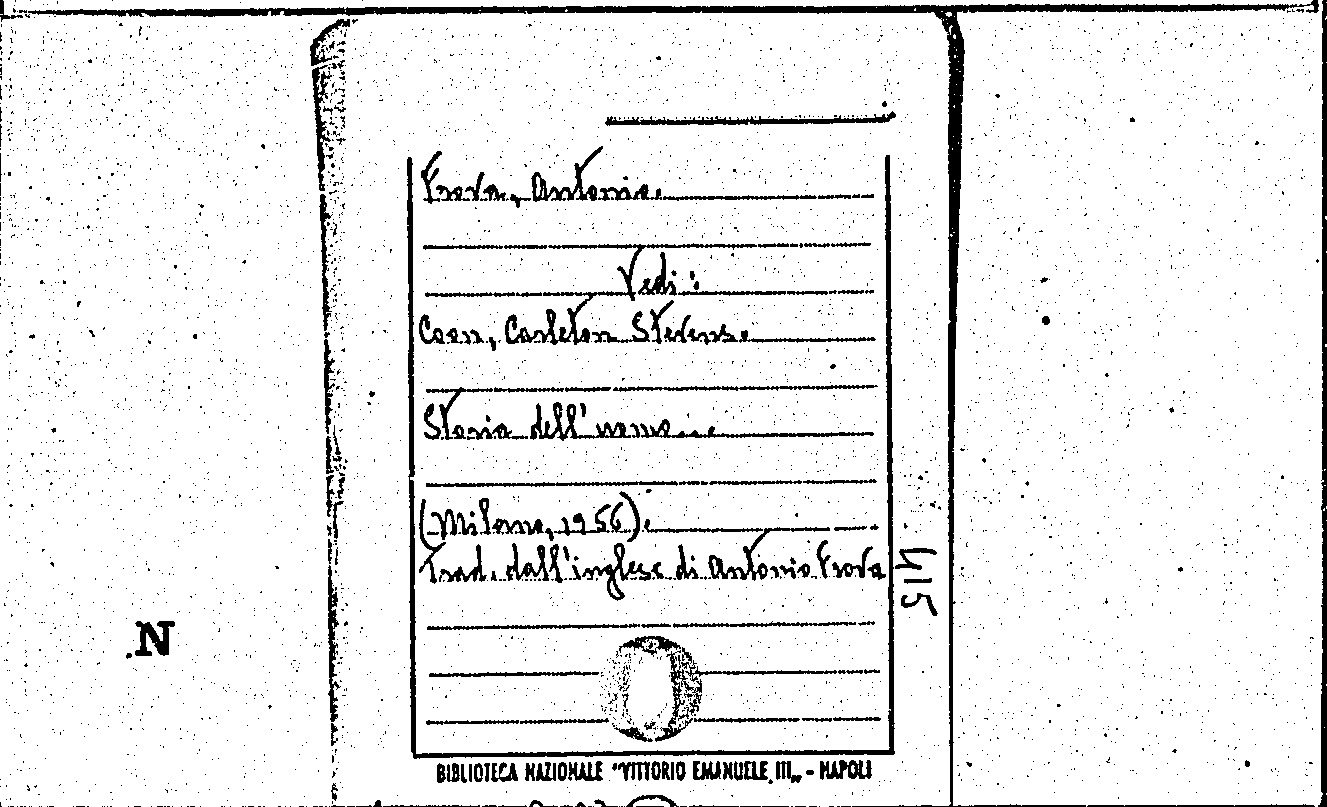 Frova, Antonio.
Vedi:
Coon, Carleton Stevens.
Storia dell'uomo...
(Milano, 1956).
Trad. dall'inglese di Antonio Frova
415
N
BIBLIOTECA NAZIONALE "VITTORIO EMANUELE III„ - NAPOLI